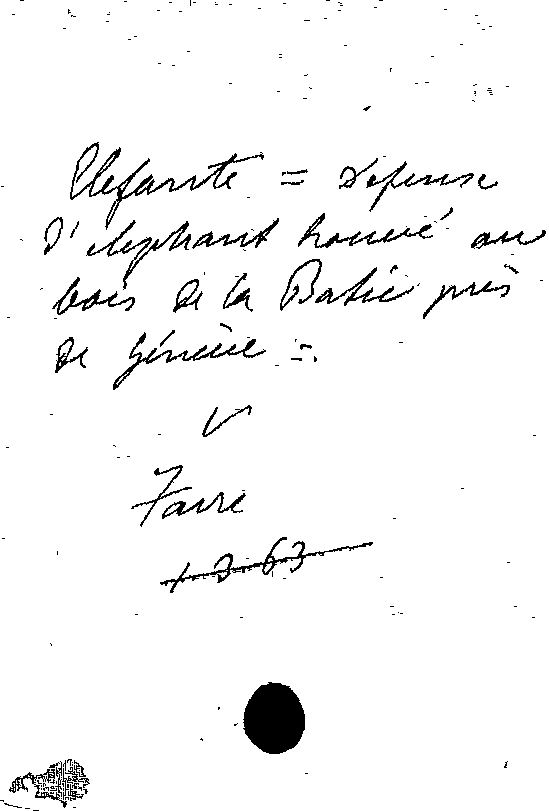 Elefante = Defense
d'elephant trouvé au
bois de la Batie près
de Génève =.
V
Favre
1363